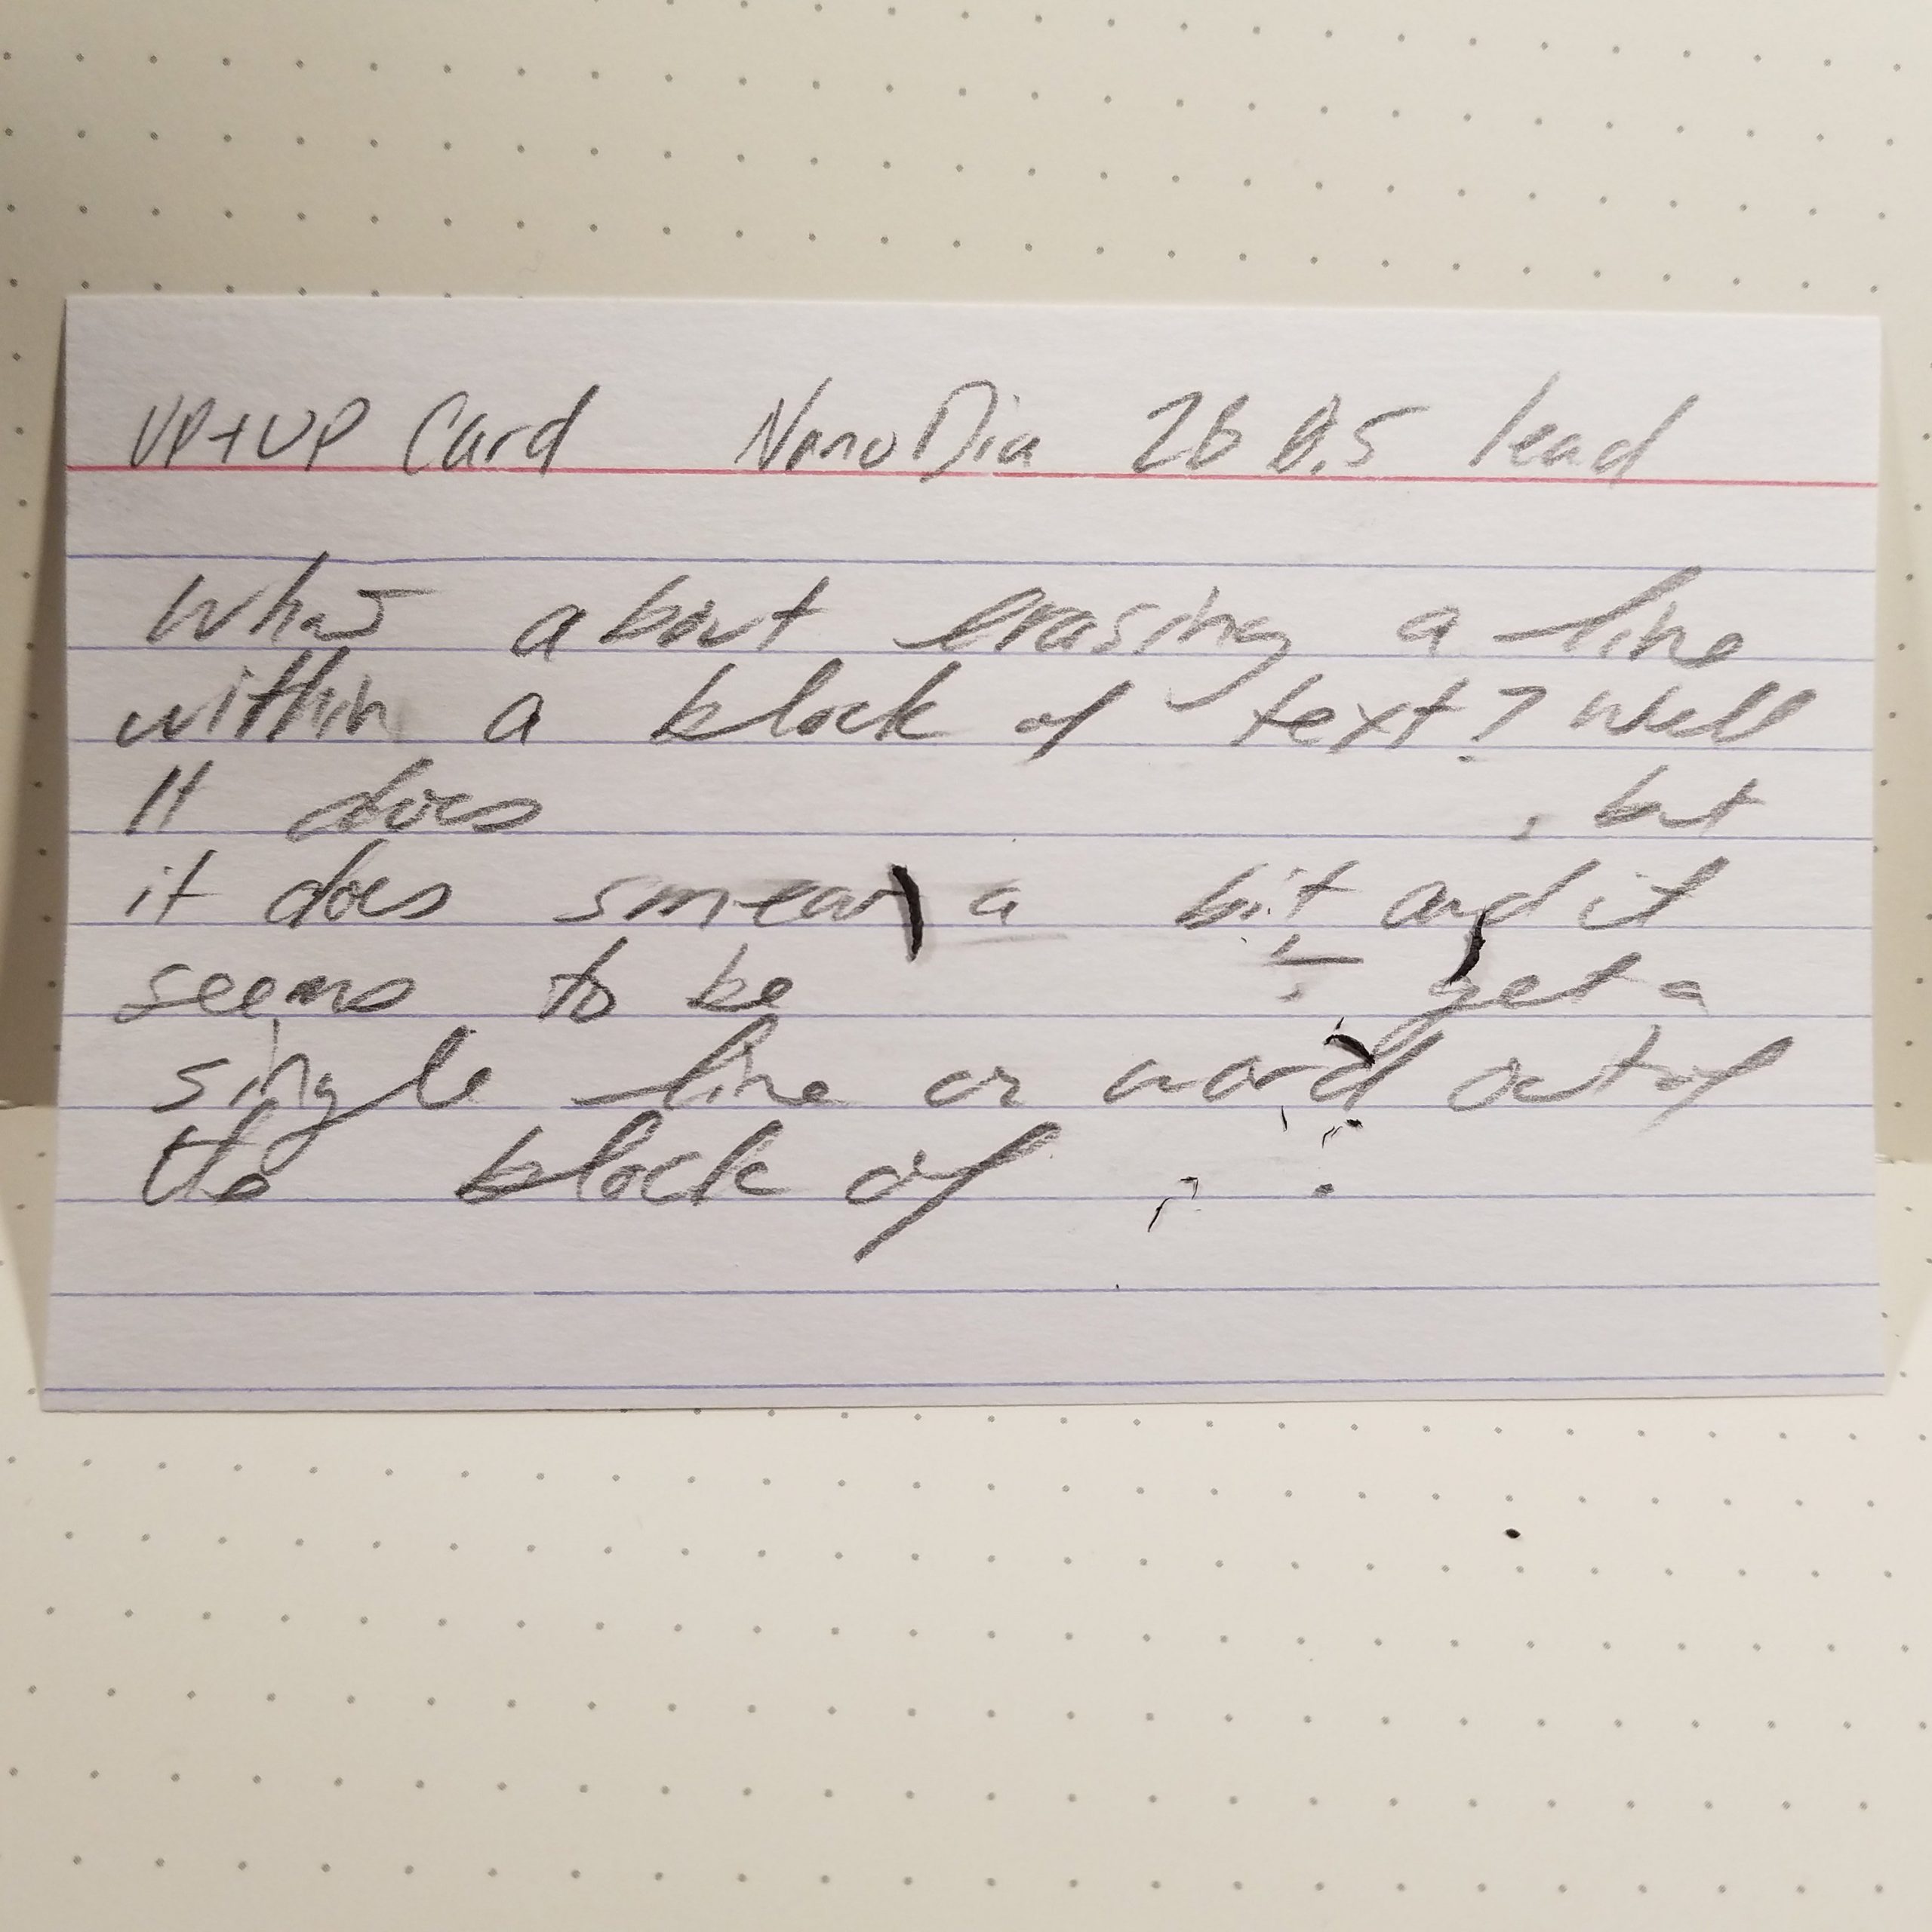 UP+UP Card NanoDia 2b 0.5 lead
What about erasing a line
within a block of text? Well
It does , but
it does smear a bit and it
seems to be get a
single line or word out of
the block of .